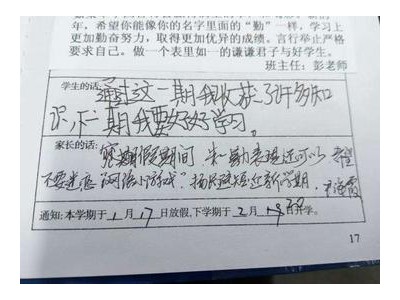 年，希望你能像你的名字里面的“勤”一样，学习上
更加勤奋努力，取得更加优异的成绩。言行举止严格
要求自己。做一个表里如一的谦谦君子与好学生。
班主任：彭老师
学生的话：通过这一期我收获了许多知
识，下一期我要好好学习。
家长的话：寒期假期间 朱勤表现还可以 希望
不要迷恋“网络小游戏”扬长避短迎新学期．
通知：本学期于1月17日放假，下学期于2月 日开学。
17